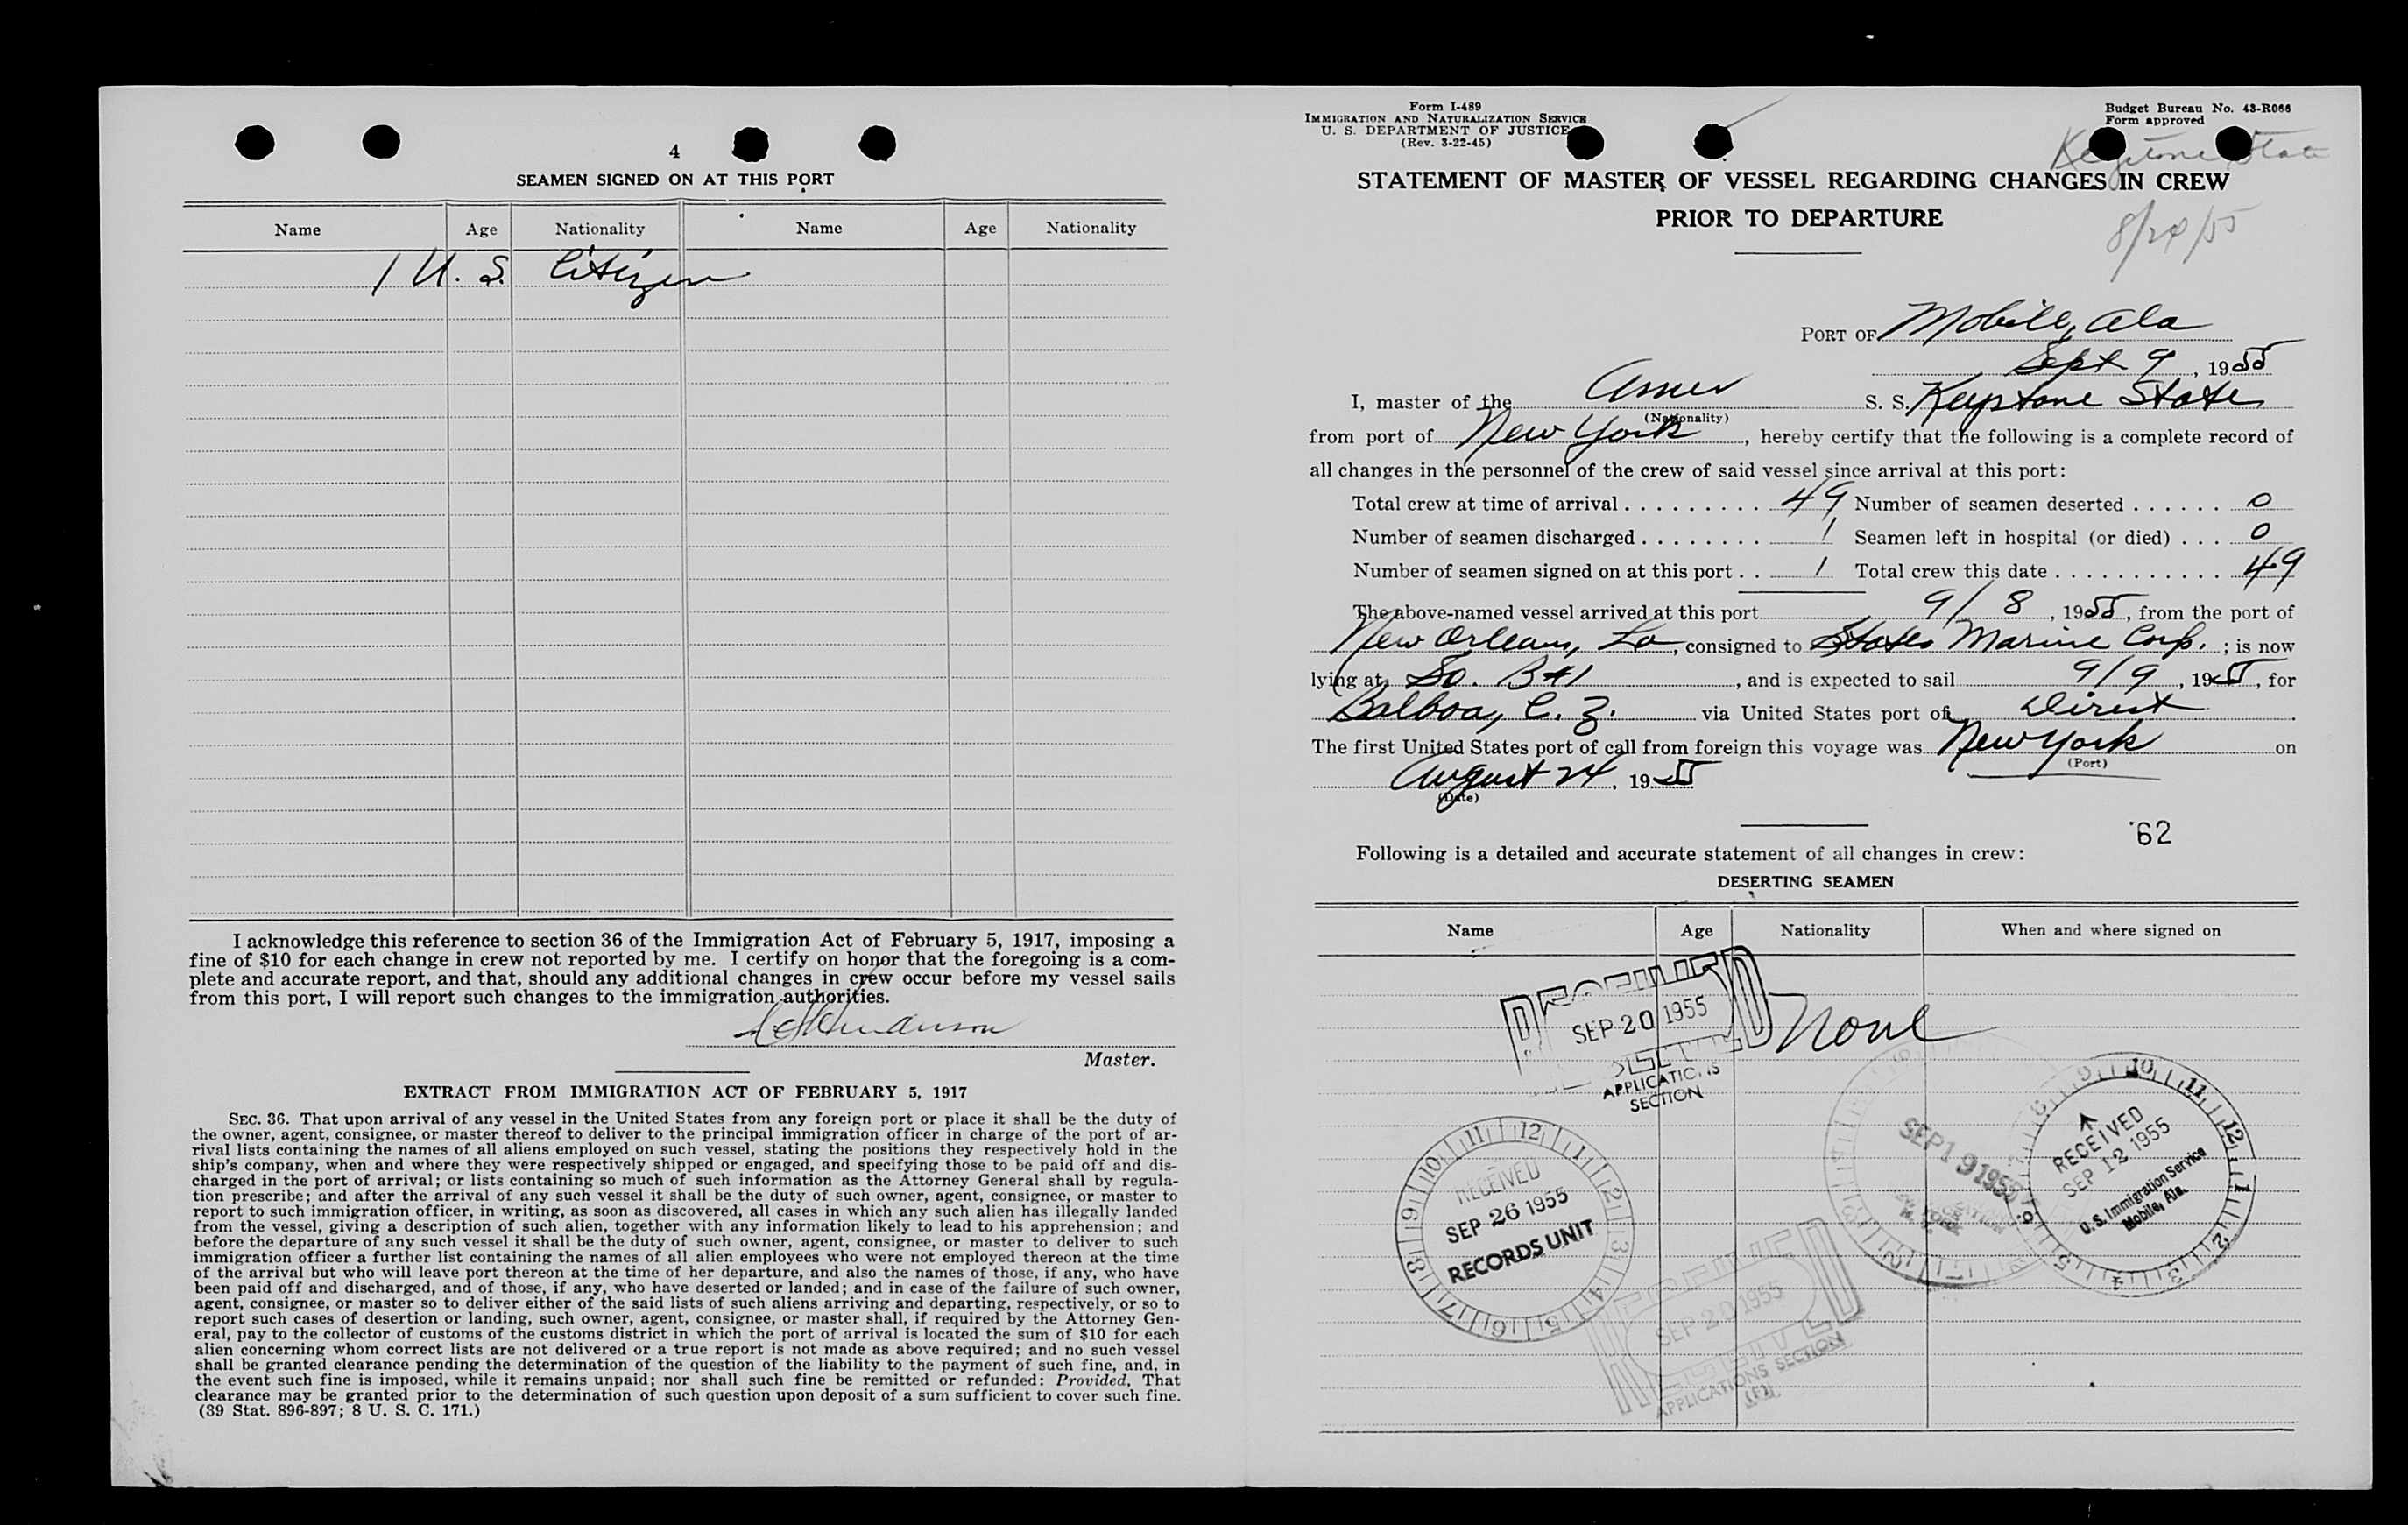 4
SEAMEN SIGNED ON AT THIS PORT
Name Age Nationality Name Age Nationality
1 U. S. Citizen
I acknowledge this reference to section 36 of the Immigration Act of February 5, 1917, imposing a
fine of $10 for each change in crew not reported by me. I certify on honor that the foregoing is a com-
plete and accurate report, and that, should any additional changes in crew occur before my vessel sails
from this port, I will report such changes to the immigration authorities.
Master.
EXTRACT FROM IMMIGRATION ACT OF FEBRUARY 5, 1917
SEC. 36. That upon arrival of any vessel in the United States from any foreign port or place it shall be the duty of
the owner, agent, consignee, or master thereof to deliver to the principal immigration officer in charge of the port of ar-
rival lists containing the names of all aliens employed on such vessel, stating the positions they respectively hold in the
ship's company, when and where they were respectively shipped or engaged, and specifying those to be paid off and dis-
charged in the port of arrival; or lists containing so much of such information as the Attorney General shall by regula-
tion prescribe; and after the arrival of any such vessel it shall be the duty of such owner, agent, consignee, or master to
report to such immigration officer, in writing, as soon as discovered, all cases in which any such alien has illegally landed
from the vessel, giving a description of such alien, together with any information likely to lead to his apprehension; and
before the departure of any such vessel it shall be the duty of such owner, agent, consignee, or master to deliver to such
immigration officer a further list containing the names of all alien employees who were not employed thereon at the time
of the arrival but who will leave port thereon at the time of her departure, and also the names of those, if any, who have
been paid off and discharged, and of those, if any, who have deserted or landed; and in case of the failure of such owner,
agent, consignee, or master so to deliver either of the said lists of such aliens arriving and departing, respectively, or so to
report such cases of desertion or landing, such owner, agent, consignee, or master shall, if required by the Attorney Gen-
eral, pay to the collector of customs of the customs district in which the port of arrival is located the sum of $10 for each
alien concerning whom correct lists are not delivered or a true report is not made as above required; and no such vessel
shall be granted clearance pending the determination of the question of the liability to the payment of such fine, and, in
the event such fine is imposed, while it remains unpaid; nor shall such fine be remitted or refunded: Provided, That
clearance may be granted prior to the determination of such question upon deposit of a sum sufficient to cover such fine.
(39 Stat. 896-897; 8 U. S. C. 171.)
Form I-489
IMMIGRATION AND NATURALIZATION SERVICE
U. S. DEPARTMENT OF JUSTICE
(Rev. 3-22-45)
Budget Bureau No. 43-R066
Form approved
Keystone State
STATEMENT OF MASTER OF VESSEL REGARDING CHANGES IN CREW
PRIOR TO DEPARTURE
8/24/55
PORT OF Mobile, Ala
Sept 9, 1955
I, master of the Amer S. S. Keystone State
(Nationality)
from port of New York, hereby certify that the following is a complete record of
all changes in the personnel of the crew of said vessel since arrival at this port:
Total crew at time of arrival . . . . . . . . . . 49 Number of seamen deserted . . . . . . 0
Number of seamen discharged . . . . . . . . 1 Seamen left in hospital (or died) . . . 0
Number of seamen signed on at this port . . 1 Total crew this date . . . . . . . . . . . . 49
The above-named vessel arrived at this port 9/8, 1955, from the port of
New Orleans, La, consigned to States Marine Corp.; is now
lying at So. B#1, and is expected to sail 9/9, 1955, for
Balboa, C. Z. via United States port of Direct.
The first United States port of call from foreign this voyage was New York on
(Port)
August 24, 1955
(Date)
62
Following is a detailed and accurate statement of all changes in crew:
DESERTING SEAMEN
Name Age Nationality When and where signed on
None
RECEIVED
SEP 20 1955
APPLICATIONS
SECTION
SEP 19 1955
RECEIVED
SEP 12 1955
U. S. Immigration Service
Mobile, Ala.
RECEIVED
SEP 26 1955
RECORDS UNIT
RECEIVED
SEP 20 1955
APPLICATIONS SECTION